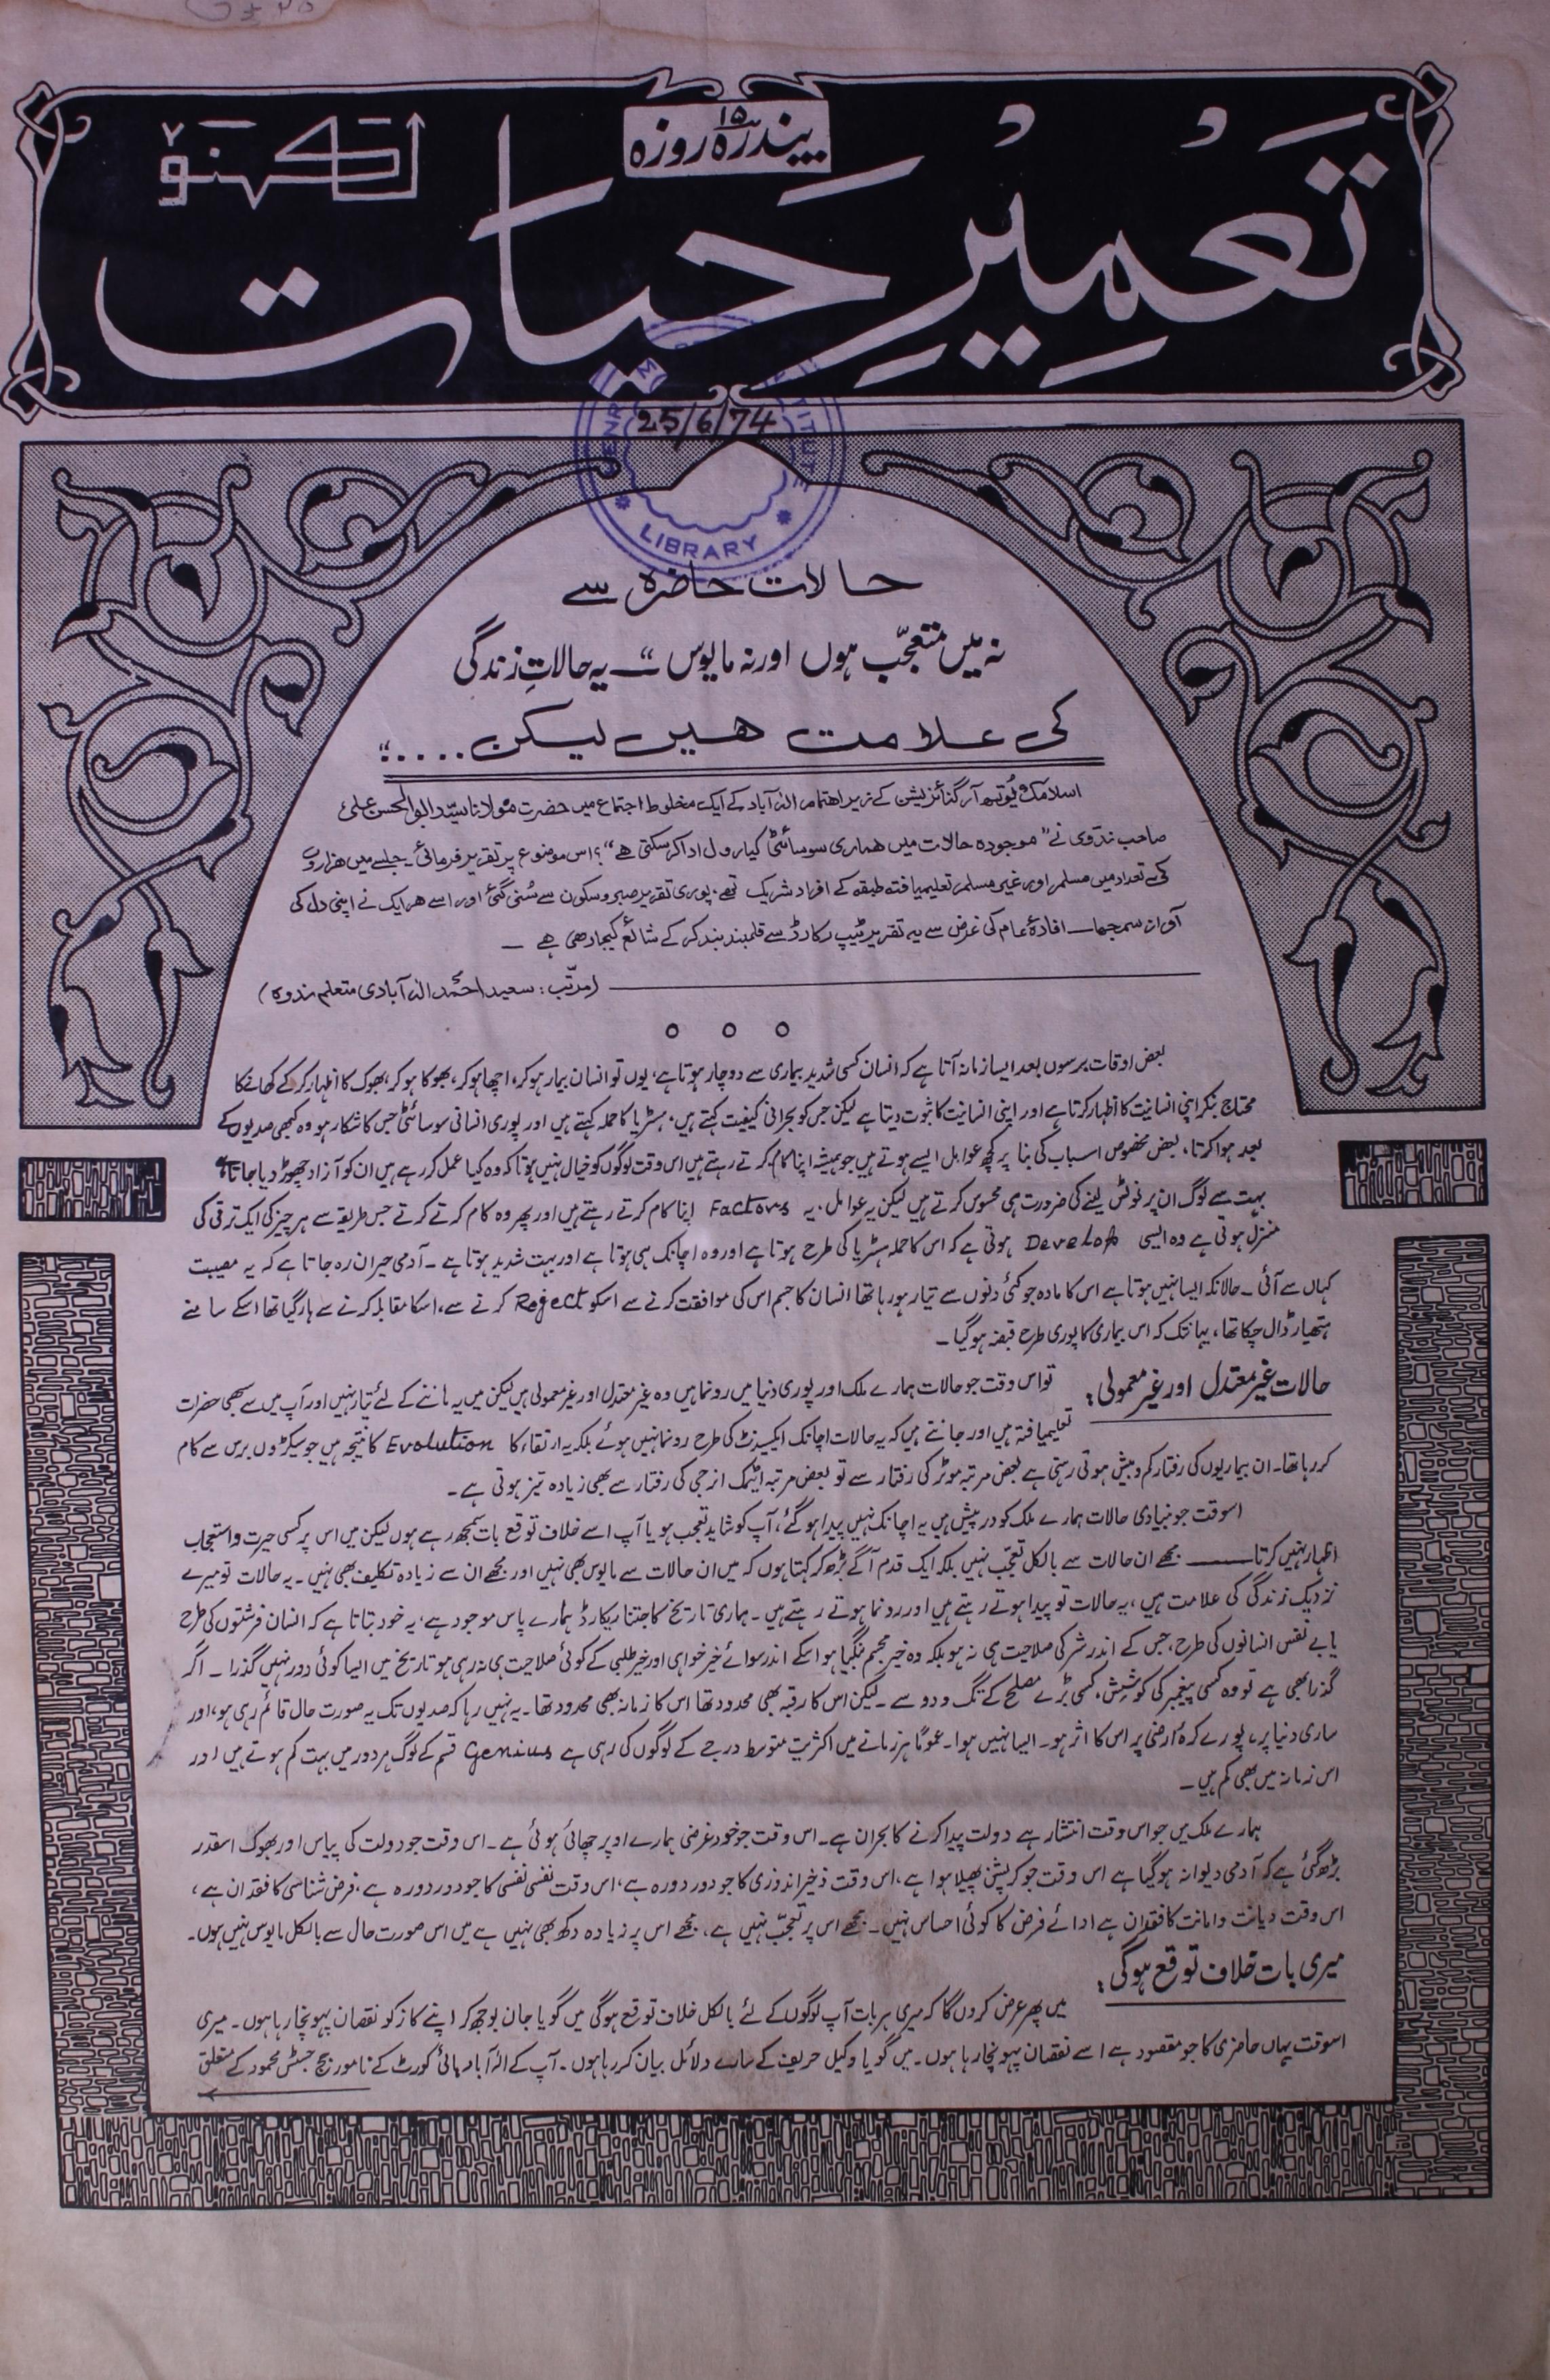 پندرہ ۱۵ روزہ
تعمیرِ حیات
لکھنؤ
25/6/74
LIBRARY
حالات حاضرہ سے
نہ میں متعجّب ہوں اور نہ مایوس “ ــ یہ حالاتِ زندگی
کی علامت ہیں لیکن ....“
اسلامک یُوتھ آرگنائزیشن کے زیر اہتمام الٰہ آباد کے ایک مخلوط اجتماع میں حضرت مولانا سیّد ابوالحسن علی
صاحب ندوی نے ”موجودہ حالات میں ہماری سوسائٹی کیا رول ادا کر سکتی ہے“؟ اس موضوع پر تقریر فرمائی۔ جلسے میں ہزاروں
کی تعداد میں مسلم اور غیر مسلم تعلیمیافتہ طبقہ کے افراد شریک تھے، پوری تقریر صبر و سکون سے سُنی گئی اور اسے ہر ایک نے اپنی دل کی
آواز سمجھا ــ افادۂ عام کی غرض سے یہ تقریر ٹیپ رکارڈ سے قلمبند بند کر کے شائع کیجا رہی ہے ــ
(مرتّب: سعید احمد الٰہ آبادی متعلم ندوہ)
بعض اوقات برسوں بعد ایسا زمانہ آتا ہے کہ انسان کسی شدید بیماری سے دوچار ہوتا ہے، یوں تو انسان بیمار ہو کر، اچھا ہو کر، بھوکا ہو کر، بھوک کا اظہار کر کے کھانے کا
محتاج بنکر اپنی انسانیت کا اظہار کرتا ہے اور اپنی انسانیت کا ثبوت دیتا ہے لیکن جس کو بحرانی کیفیت کہتے ہیں، ہسٹریا کا حملہ کہتے ہیں اور پوری انسانی سوسائٹی جس کا شکار ہو وہ کبھی صدیوں کے
بعد ہوا کرتا، بعض مخصوص اسباب کی بنا پر کچھ عوامل ایسے ہوتے ہیں جو ہمیشہ اپنا کام کرتے رہتے ہیں اس وقت لوگوں کو خیال نہیں ہوتا کہ وہ کیا عمل کر رہے ہیں ان کو آزاد چھوڑ دیا جاتا ہے
بہت سے لوگ ان پر نوٹس لینے کی ضرورت ہی محسوس کرتے ہیں لیکن یہ عوامل، یہ Factors اپنا کام کرتے رہتے ہیں اور پھر وہ کام کرتے کرتے جس طریقے سے ہر چیز کی ایک ترقی کی
منزل ہوتی ہے وہ ایسی Develop ہوتی ہے کہ اس کا حملہ ہسٹریا کی طرح ہوتا ہے اور وہ اچانک ہی ہوتا ہے اور بہت شدید ہوتا ہے ۔ آدمی حیران رہ جاتا ہے کہ یہ مصیبت
کہاں سے آئی ۔ حالانکہ ایسا نہیں ہوتا ہے اس کا مادہ جو کئی دنوں سے تیار ہو رہا تھا انسان کا جسم اس کی موافقت کرنے سے اسکو Reject کرنے سے، اسکا مقابلہ کرنے سے ہار گیا تھا اسکے سامنے
ہتھیار ڈال چکا تھا، یہانتک کہ اس بیماری کا پوری طرح قبضہ ہو گیا ۔
حالات غیر معتدل اور غیر معمولی:
تو اس وقت جو حالات ہمارے ملک اور پوری دنیا میں رونما ہیں وہ غیر معتدل اور غیر معمولی ہیں لیکن میں یہ ماننے کے لئے تیار نہیں اور آپ میں سے سبھی حضرات
تعلیمیافتہ ہیں اور جانتے ہیں کہ یہ حالات اچانک ایکسیڈنٹ کی طرح رونما نہیں ہوئے بلکہ یہ ارتقاء کا Evolution کا نتیجہ ہیں جو سیکڑوں برس سے کام
کر رہا تھا۔ ان بیماریوں کی رفتار کم و بیش ہوتی رہتی ہے بعض مرتبہ موٹر کی رفتار سے تو بعض مرتبہ ایٹمک انرجی کی رفتار سے بھی زیادہ تیز ہوتی ہے ۔
اسوقت جو بنیادی حالات ہمارے ملک کو درپیش ہیں یہ اچانک نہیں پیدا ہو گئے، آپ کو شاید تعجب ہو یا آپ اسے خلاف توقع بات سمجھ رہے ہوں لیکن میں اس پر کسی حیرت و استعجاب
اظہار نہیں کرتا ــ مجھے ان حالات سے بالکل تعجّب نہیں بلکہ ایک قدم آگے بڑھ کر کہتا ہوں کہ میں ان حالات سے مایوس بھی نہیں اور مجھے ان سے زیادہ تکلیف بھی نہیں ۔ یہ حالات تو میرے
نزدیک زندگی کی علامت ہیں، یہ حالات تو پیدا ہوتے رہتے ہیں اور رونما ہوتے رہتے ہیں ۔ ہماری تاریخ کا جتنا ریکارڈ ہمارے پاس موجود ہے، یہ خود بتاتا ہے کہ انسان فرشتوں کی طرح
یا بے نفس انسانوں کی طرح، جس کے اندر شر کی صلاحیت ہی نہ ہو بلکہ وہ خیر مجسم بنگیا ہو اسکے اندر سوائے خیر خواہی اور خیر طلبی کے کوئی صلاحیت ہی نہ رہی ہو تاریخ میں ایسا کوئی دور نہیں گذرا ۔ اگر
گذرا بھی ہے تو وہ کسی پیغمبر کی کوشش، کسی بڑے مصلح کے تگ و دو سے ۔ لیکن اس کا رقبہ بھی محدود تھا اس کا زمانہ بھی محدود تھا ۔ یہ نہیں رہا کہ صدیوں تک یہ صورت حال قائم رہی ہو، اور
ساری دنیا پر، پورے کرہ ارضی پر اس کا اثر ہو ۔ ایسا نہیں ہوا ۔ عموماً ہر زمانے میں اکثریت متوسط درجے کے لوگوں کی رہی ہے Genius قسم کے لوگ ہر دور میں بہت کم ہوتے ہیں اور
اس زمانہ میں بھی کم ہیں ۔
ہمارے ملک میں جو اس وقت انتشار ہے دولت پیدا کرنے کا بحران ہے ۔ اس وقت جو خود غرضی ہمارے اوپر چھائی ہوئی ہے ۔ اس وقت جو دولت کی پیاس اور بھوک اسقدر
بڑھ گئی ہے کہ آدمی دیوانہ ہو گیا ہے اس وقت جو کرپشن پھیلا ہوا ہے، اس وقت ذخیر اندوزی کا جو دور دورہ ہے، اس وقت نفسی نفسی کا جو دور دورہ ہے، فرض شناسی کا فقدان ہے،
اس وقت دیانت و امانت کا فقدان ہے ادائے فرض کا کوئی احساس نہیں ۔ مجھے اس پر تعجّب نہیں ہے، مجھے اس پر زیادہ دکھ بھی نہیں ہے میں اس صورت حال سے بالکل مایوس نہیں ہوں۔
میری بات خلاف توقع ہو گی:
میں پھر عرض کر دوں گا کہ میری ہر بات آپ لوگوں کے لئے بالکل خلاف توقع ہو گی میں گویا جان بوجھ کر اپنے کاز کو نقصان پہونچا رہا ہوں ۔ میری
اسوقت یہاں حاضری کا جو مقصود ہے اسے نقصان پہونچا رہا ہوں ۔ میں گویا وکیل حریف کے سارے دلائل بیان کر رہا ہوں ۔ آپ کے الہ آباد ہائی کورٹ کے نامور جج جسٹس محمود کے متعلق